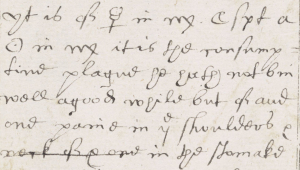 yt is of ♃ in ♏. Capt a
☉ in ♏ it is the consump
tive plague he hath not bin
well a good while but of and
one paine in ye shoulders &
neck & one in the stomake